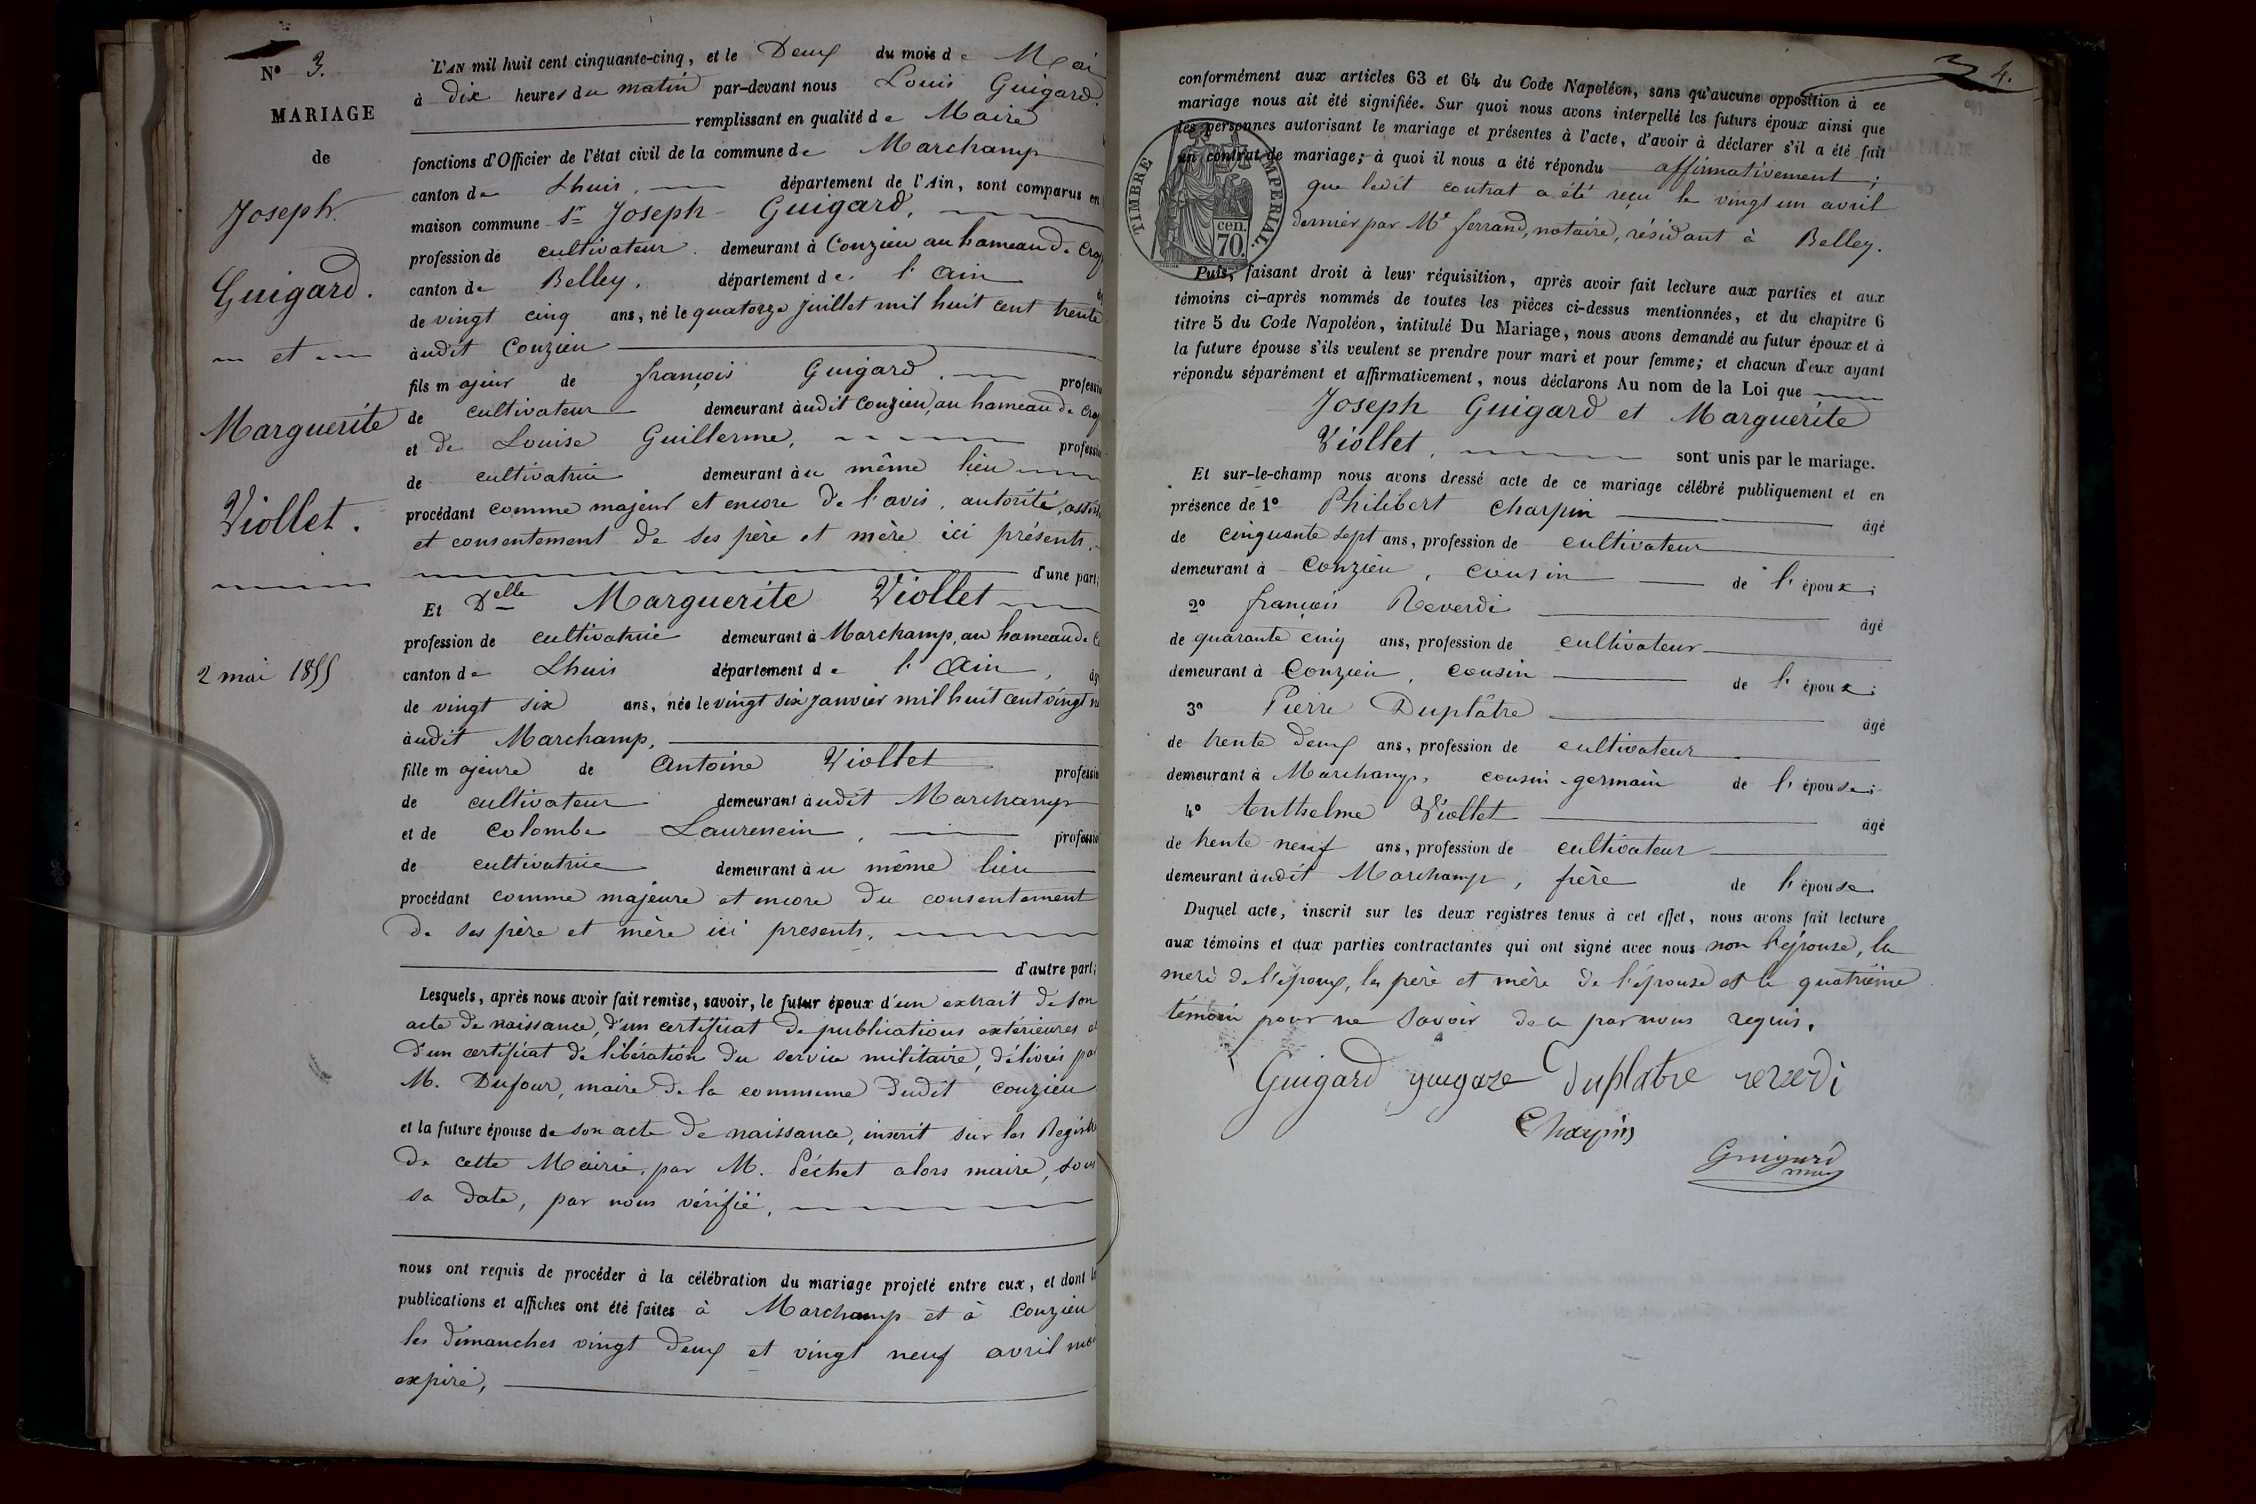 Nº 3.
MARIAGE
de
Joseph
Guigard.
et
Marguerite
Viollet.
2 mai 1855
L'AN mil huit cent cinquante-cinq, et le Deux du mois de Mai
à dix heures du matin par-devant nous Louis Guigard.
remplissant en qualité de Maire
fonctions d'Officier de l'état civil de la commune de Marchamp
canton de Lhuis, département de l'Ain, sont comparus en
maison commune Sr Joseph Guigard,
profession de cultivateur demeurant à Conzieu au hameau de
canton de Belley, département de l'Ain
de vingt cinq ans, né le quatorze juillet mil huit cent trente
audit Conzieu
fils majeur de françois Guigard, professio
de cultivateur demeurant audit Conzieu, au hameau de
et de Louise Guillerme, professio
de cultivatrice demeurant au même lieu
procédant comme majeur et encore de l'avis, autorité,
et consentement de ses père et mère ici présents,
d'une part;
Et Delle Marguerite Viollet
profession de cultivatrice demeurant à Marchamp, au hameau de
canton de Lhuis département de l'Ain,
de vingt six ans, née le vingt six janvier mil huit cent vingt
audit Marchamp,
fille majeure de Antoine Viollet professio
de cultivateur demeurant audit Marchamp
et de Colombe Laurencin, professio
de cultivatrice demeurant au même lieu
procédant comme majeure et encore du consentement
de ses père et mère ici presents,
d'autre part;
Lesquels, après nous avoir fait remise, savoir, le futur époux d'un extrait de son
acte de naissance, d'un certificat de publications extérieures et
d'un certificat de libération du service militaire, délivrés par
M. Dufour, maire de la commune dudit Conzieu
et la future épouse de son acte de naissance, inscrit sur les Registre
de cette Mairie, par M. Péchet alors maire, sous
sa date, par nous vérifié,
nous ont requis de procéder à la célébration du mariage projeté entre eux, et dont les
publications et affiches ont été faites à Marchamp et à Conzieu
les dimanches vingt deux et vingt neuf avril
expiré,
4.
conformément aux articles 63 et 64 du Code Napoléon, sans qu'aucune opposition à ce
mariage nous ait été signifiée. Sur quoi nous avons interpellé les futurs époux ainsi que
les personnes autorisant le mariage et présentes à l'acte, d'avoir à déclarer s'il a été fait
un contrat de mariage; à quoi il nous a été répondu affirmativement;
que ledit contrat a été reçu le vingt un avril
dernier par Me ferrand, notaire, résidant à Belley.
TIMBRE IMPERIAL.
cen.
70.
Puis, faisant droit à leur réquisition, après avoir fait lecture aux parties et aux
témoins ci-après nommés de toutes les pièces ci-dessus mentionnées, et du chapitre 6
titre 5 du Code Napoléon, intitulé Du Mariage, nous avons demandé au futur époux et à
la future épouse s'ils veulent se prendre pour mari et pour femme; et chacun d'eux ayant
répondu séparément et affirmativement, nous déclarons Au nom de la Loi que
Joseph Guigard et Marguerite
Viollet, sont unis par le mariage.
Et sur-le-champ nous avons dressé acte de ce mariage célébré publiquement et en
présence de 1º Philibert Charpin âgé
de cinquante sept ans, profession de cultivateur
demeurant à Conzieu, cousin de l'époux;
2º françois Reverdi âgé
de quarante cinq ans, profession de cultivateur
demeurant à Conzieu, cousin de l'époux;
3º Pierre Duplâtre âgé
de trente deux ans, profession de cultivateur
demeurant à Marchamp, cousin-germain de l'épouse;
4º Anthelme Viollet âgé
de trente neuf ans, profession de cultivateur
demeurant audit Marchamp, frère de l'épouse
Duquel acte, inscrit sur les deux registres tenus à cet effet, nous avons fait lecture
aux témoins et aux parties contractantes qui ont signé avec nous non l'épouse, la
mère de l'époux, les père et mère de l'épouse et le quatrième
témoin pour ne savoir de ce par nous requis.
Guigard Duplatre reverdi
Charpin
Guigard